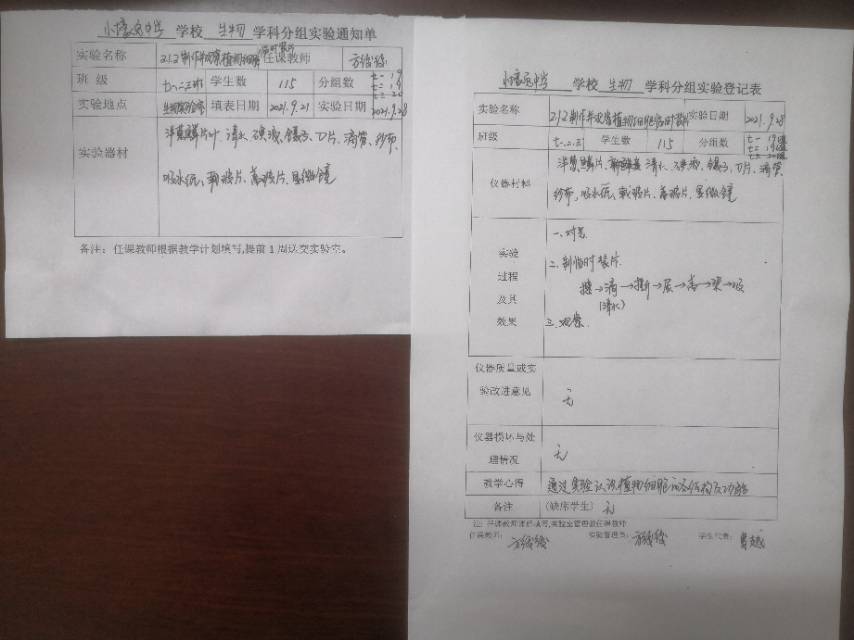 学校 生物 学科分组实验通知单
实验名称 2.1.2制作并观察植物细胞临时装片 任课教师 方络络
班 级 七一、二、三班 学生数 115 分组数 七一 19 七二 19 七三 20
实验地点 生物实验室 填表日期 2021.9.21 实验日期 2021.9.28
实验器材 洋葱鳞片叶、清水、碘液、镊子、刀片、滴管、纱布、
吸水纸、载玻片、盖玻片、显微镜
备注：任课教师根据教学计划填写,提前1周送交实验室。
学校 生物 学科分组实验登记表
实验名称 2.1.2制作并观察植物细胞临时装片 实验日期 2021.9.28
班级 七一、二、三 学生数 115 分组数 七一 19组 七二 19组 七三 20组
仪器材料 洋葱鳞片 清水、碘液、镊子、刀片、滴管、
纱布、吸水纸、载玻片、盖玻片、显微镜
实验
过程
及其
效果
一、对光
二、制临时装片
擦→滴→撕→展→盖→染→吸
(清水)
三、观察
仪器质量或实
验改进意见 无
仪器损坏与处
理情况 无
教学心得 通过实验认识植物细胞的基本结构及功能
备注 (缺席学生) 无
任课教师： 方络络 实验管理员： 方络络 学生代表：